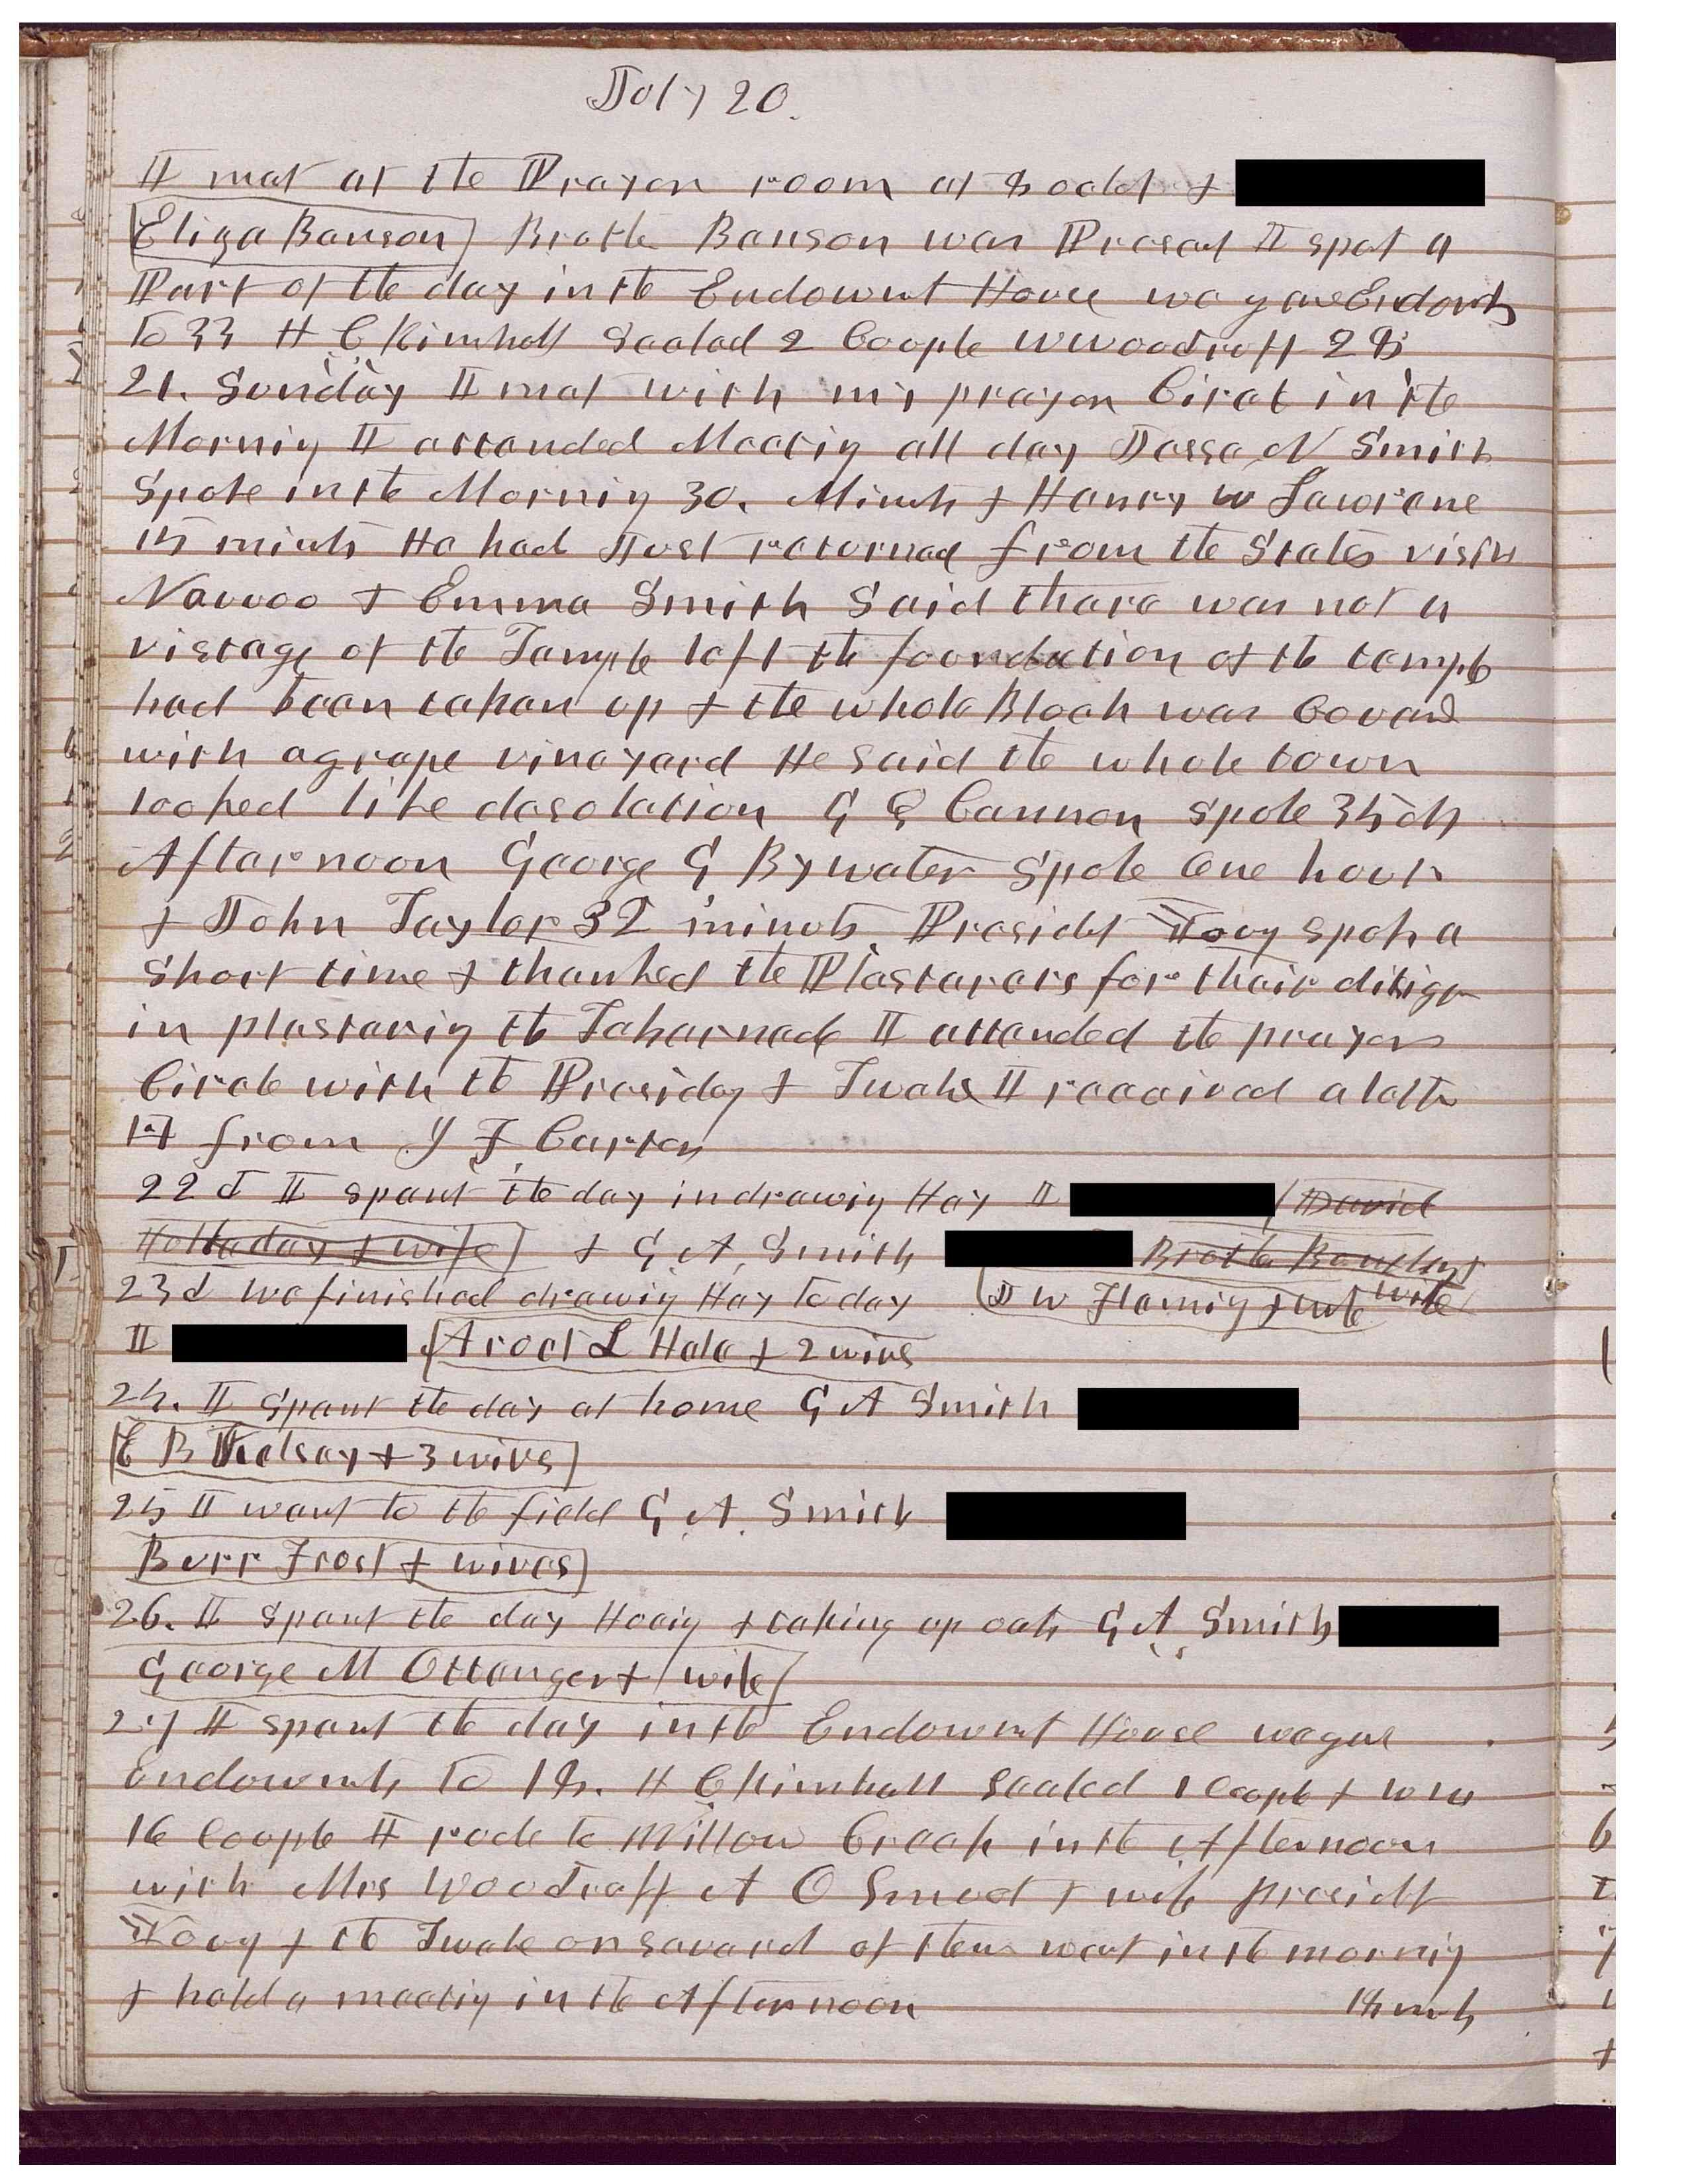 July 20.
I met at the Prayer room at 8 oclok &
Eliza Benson) Brothe Benson was Present I spet a
Part of the day in the Endowmt House we gave Endowts
to 33 H C Kimball Sealed 2 Couple W Woodruff 28
21. Sunday I met with my prayer Circl in the
Morning I attended Meeting all day Jesse N Smith
Spoke in the Morning 30. Minuts & Henry W Lawrence
15 minuts He had Just returned from the States visitd
Nauvoo & Emma Smith Said there was not a
vistage of the Temple left the foundation of the temple
had been taken up & the whole Block was Coverd
with a grape vineyard He said the whole town
looked like desolation G Q Cannon spoke 35 m
Afternoon George G Bywater Spoke One hour
& John Taylor 32 minuts Presidet Young spoke a
Short time & thanked the Plasterers for their diligen
in plastering the Tabernacle I attended the prayer
Circle with the Presidey & Twelve I received a lettr
from J F Carter
22d I spent the day in drawing Hay I (David
Holladay & wife) & G. A. Smith Brothe
23d We finished drawing Hay to day (J W Fleming & wife wife
I Aroet L Hale & 2 wives
24. I Spent the day at home G A Smith
E B Kelsey & 3 wives)
25 I went to the field G. A. Smith
Burr Frost & wives)
26. I spent the day Hoeig & taking up oats G. A. Smith
George M Ottanger & wife
27 I spent the day in the Endowmt House we gave
Endowmts to 18. H C Kimball sealed 1 Couple & W W
16 Couple I rode to Millow Creek in the Afternoon
with Mrs Woodruff A O Smoot & wife presidt
Young & the Twelve or severel of them went in the morning
& held a meeting in the Afternoon 18 mls